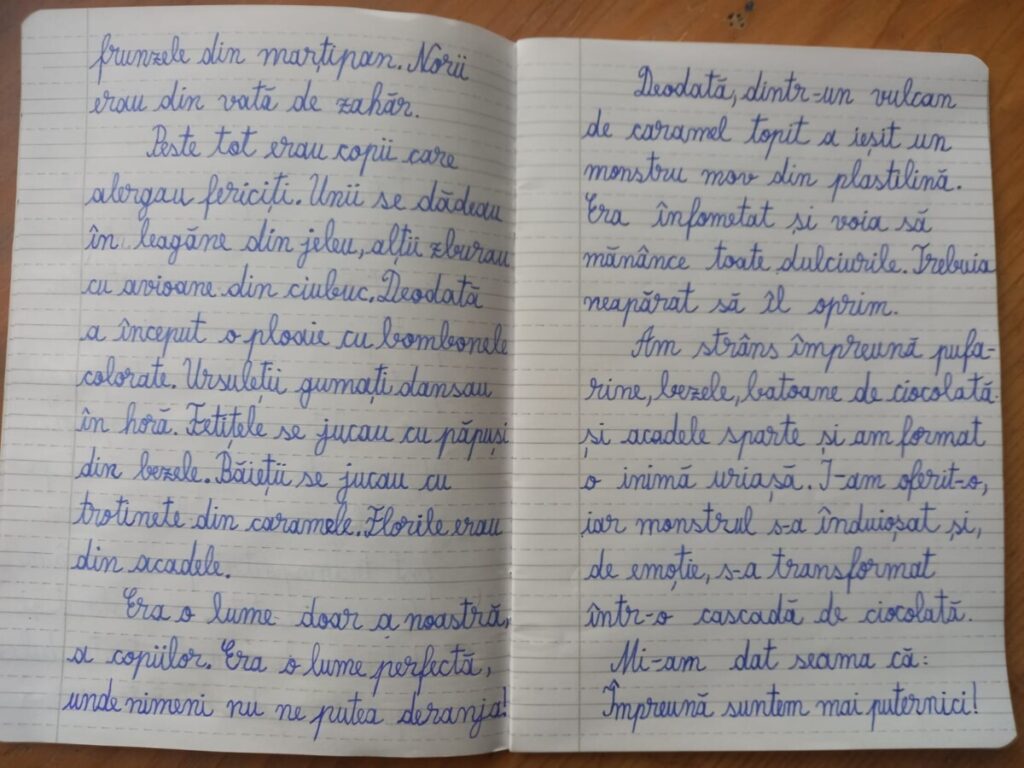 frunzele din marțipan. Norii
erau din vată de zahăr.
Peste tot erau copii care
alergau fericiți. Unii se dădeau
în leagăne din jeleu, alții zburau
cu avioane din ciubuc. Deodată
a început o ploaie cu bomboane
colorate. Ursuleții gumați dansau
în horă. Fetițele se jucau cu păpuși
din bezele. Băieții se jucau cu
trotinete din caramele. Florile erau
din acadele.
Era o lume doar a noastră,
a copiilor. Era o lume perfectă,
unde nimeni nu ne putea deranja!
Deodată, dintr-un vulcan
de caramel topit a ieșit un
monstru mov din plastilină.
Era înfometat și voia să
mănânce toate dulciurile. Trebuia
neapărat să îl oprim.
Am strâns împreună pufa-
rine, bezele, batoane de ciocolată
și acadele sparte și am format
o inimă uriașă. I-am oferit-o,
iar monstrul s-a înduioșat și,
de emoție, s-a transformat
într-o cascadă de ciocolată.
Mi-am dat seama că:
Împreună suntem mai puternici!